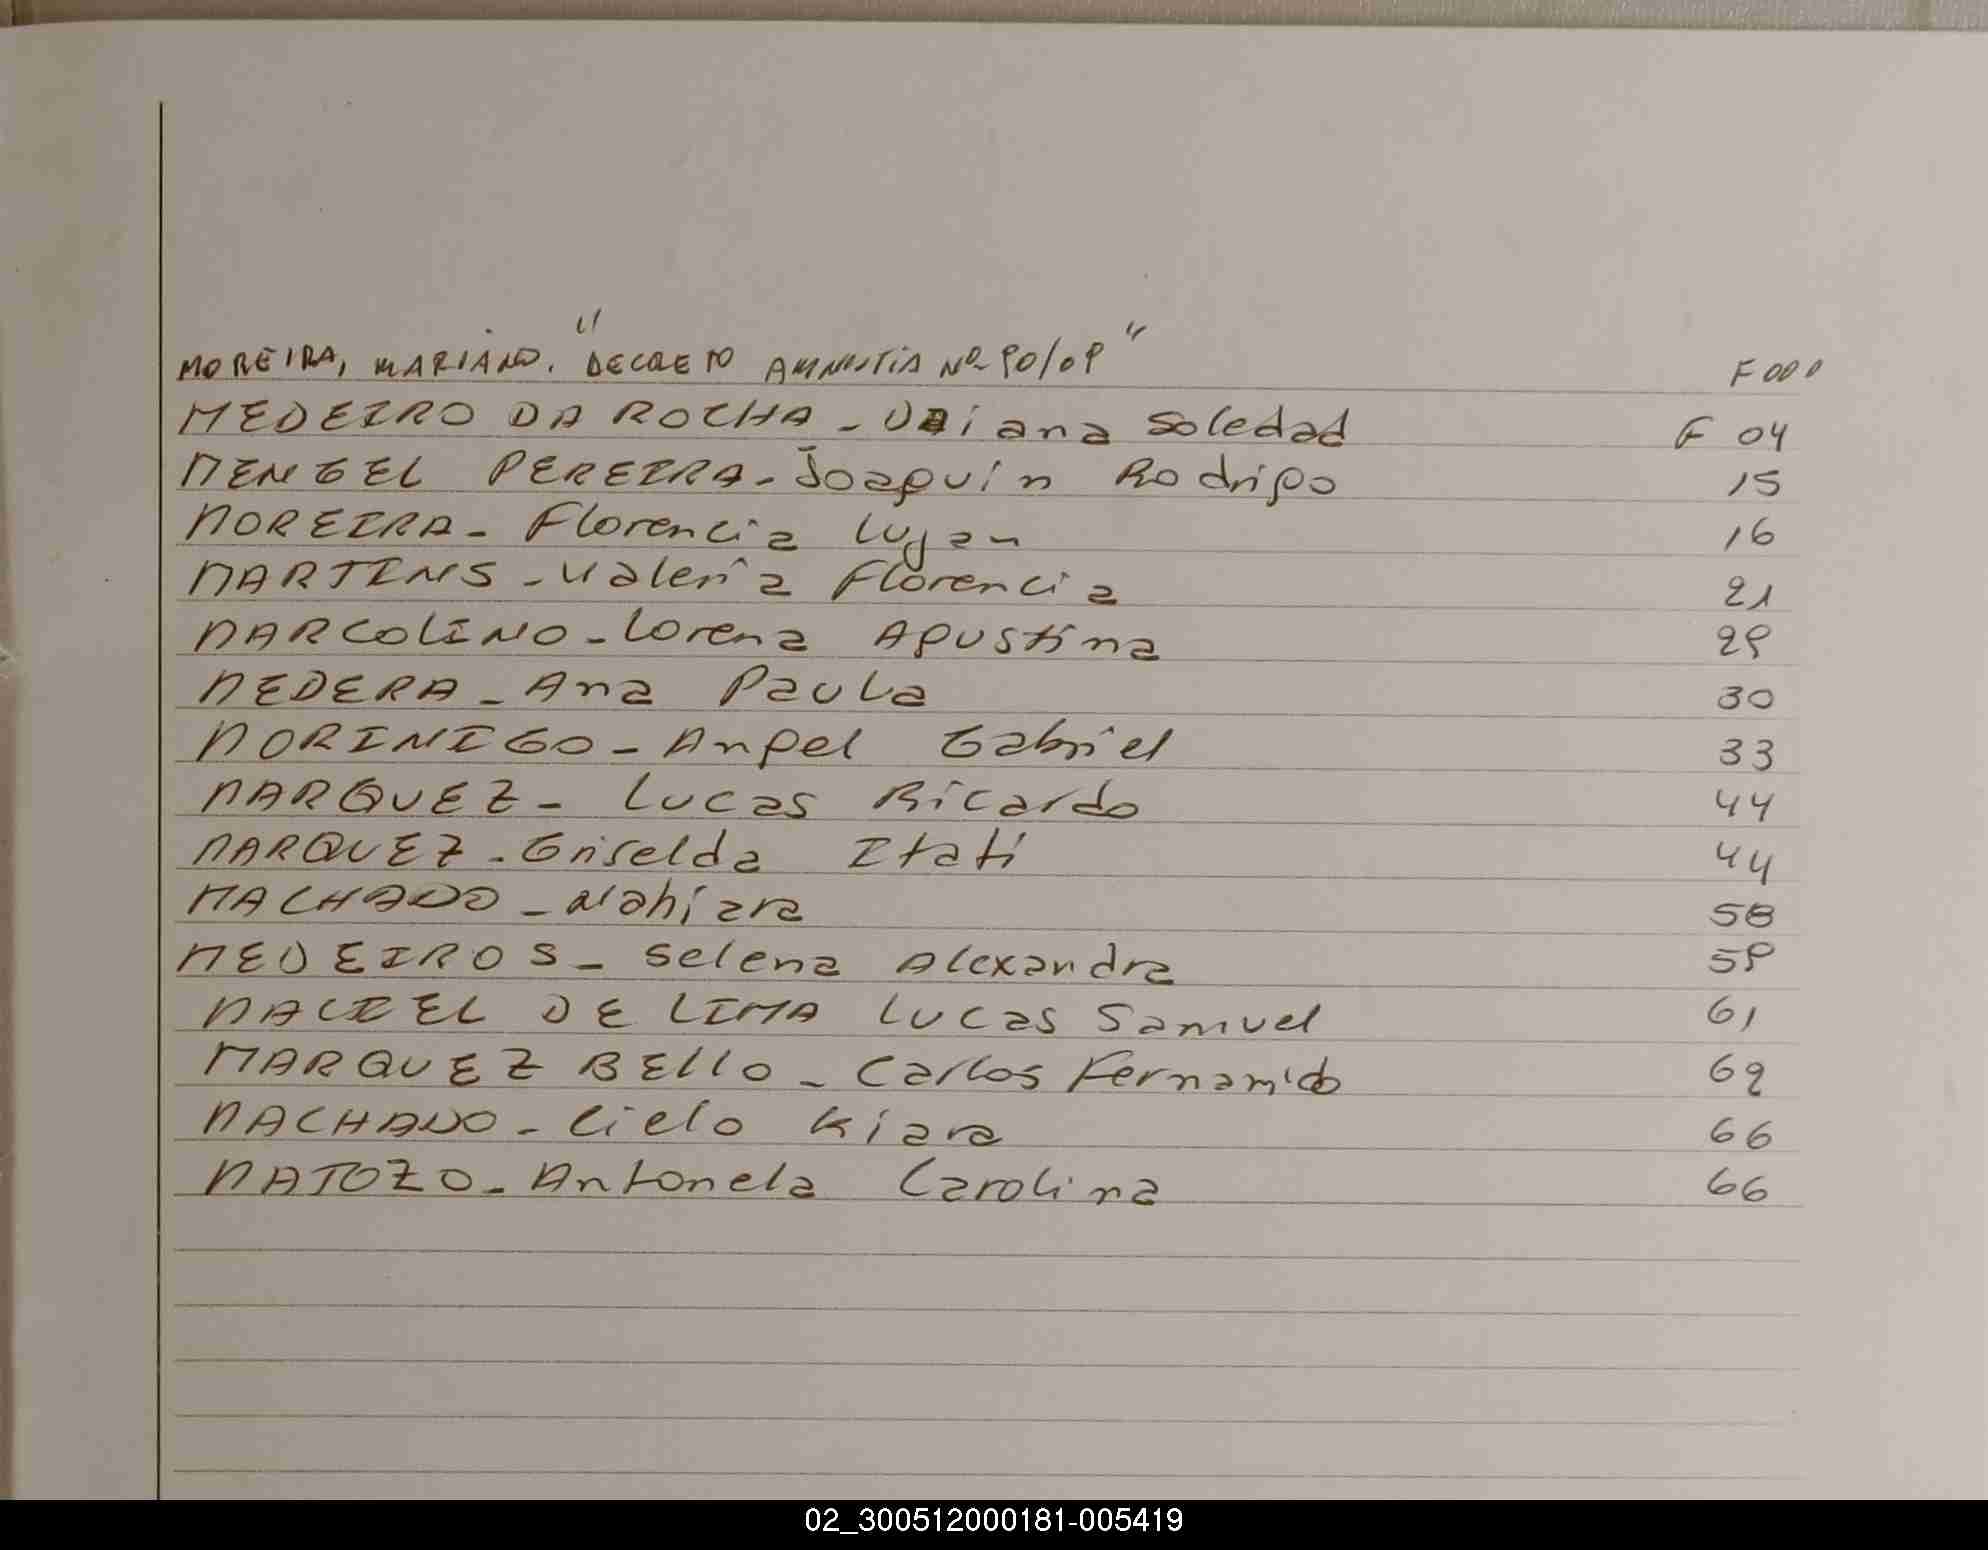 MOREIRA, MARIANO. "DECRETO AMNISTIA Nº 90/09" F 000
MEDEIRO DA ROCHA - Diana Soledad F 04
MENGEL PEREIRA - Joaquín Rodrigo 15
MOREIRA - Florencia Lujan 16
MARTINS - Valeria Florencia 21
MARCOLINO - Lorena Agustina 29
MEDERA - Ana Paula 30
MORINIGO - Angel Gabriel 33
MARQUEZ - Lucas Ricardo 44
MARQUEZ - Griselda Itati 44
MACHADO - Nahiara 58
MEDEIROS - Selena Alexandra 59
MACIEL DE LIMA Lucas Samuel 61
MARQUEZ BELLO - Carlos Fernando 62
MACHADO - Cielo Kiara 66
MATOZO - Antonela Carolina 66
02_300512000181-005419